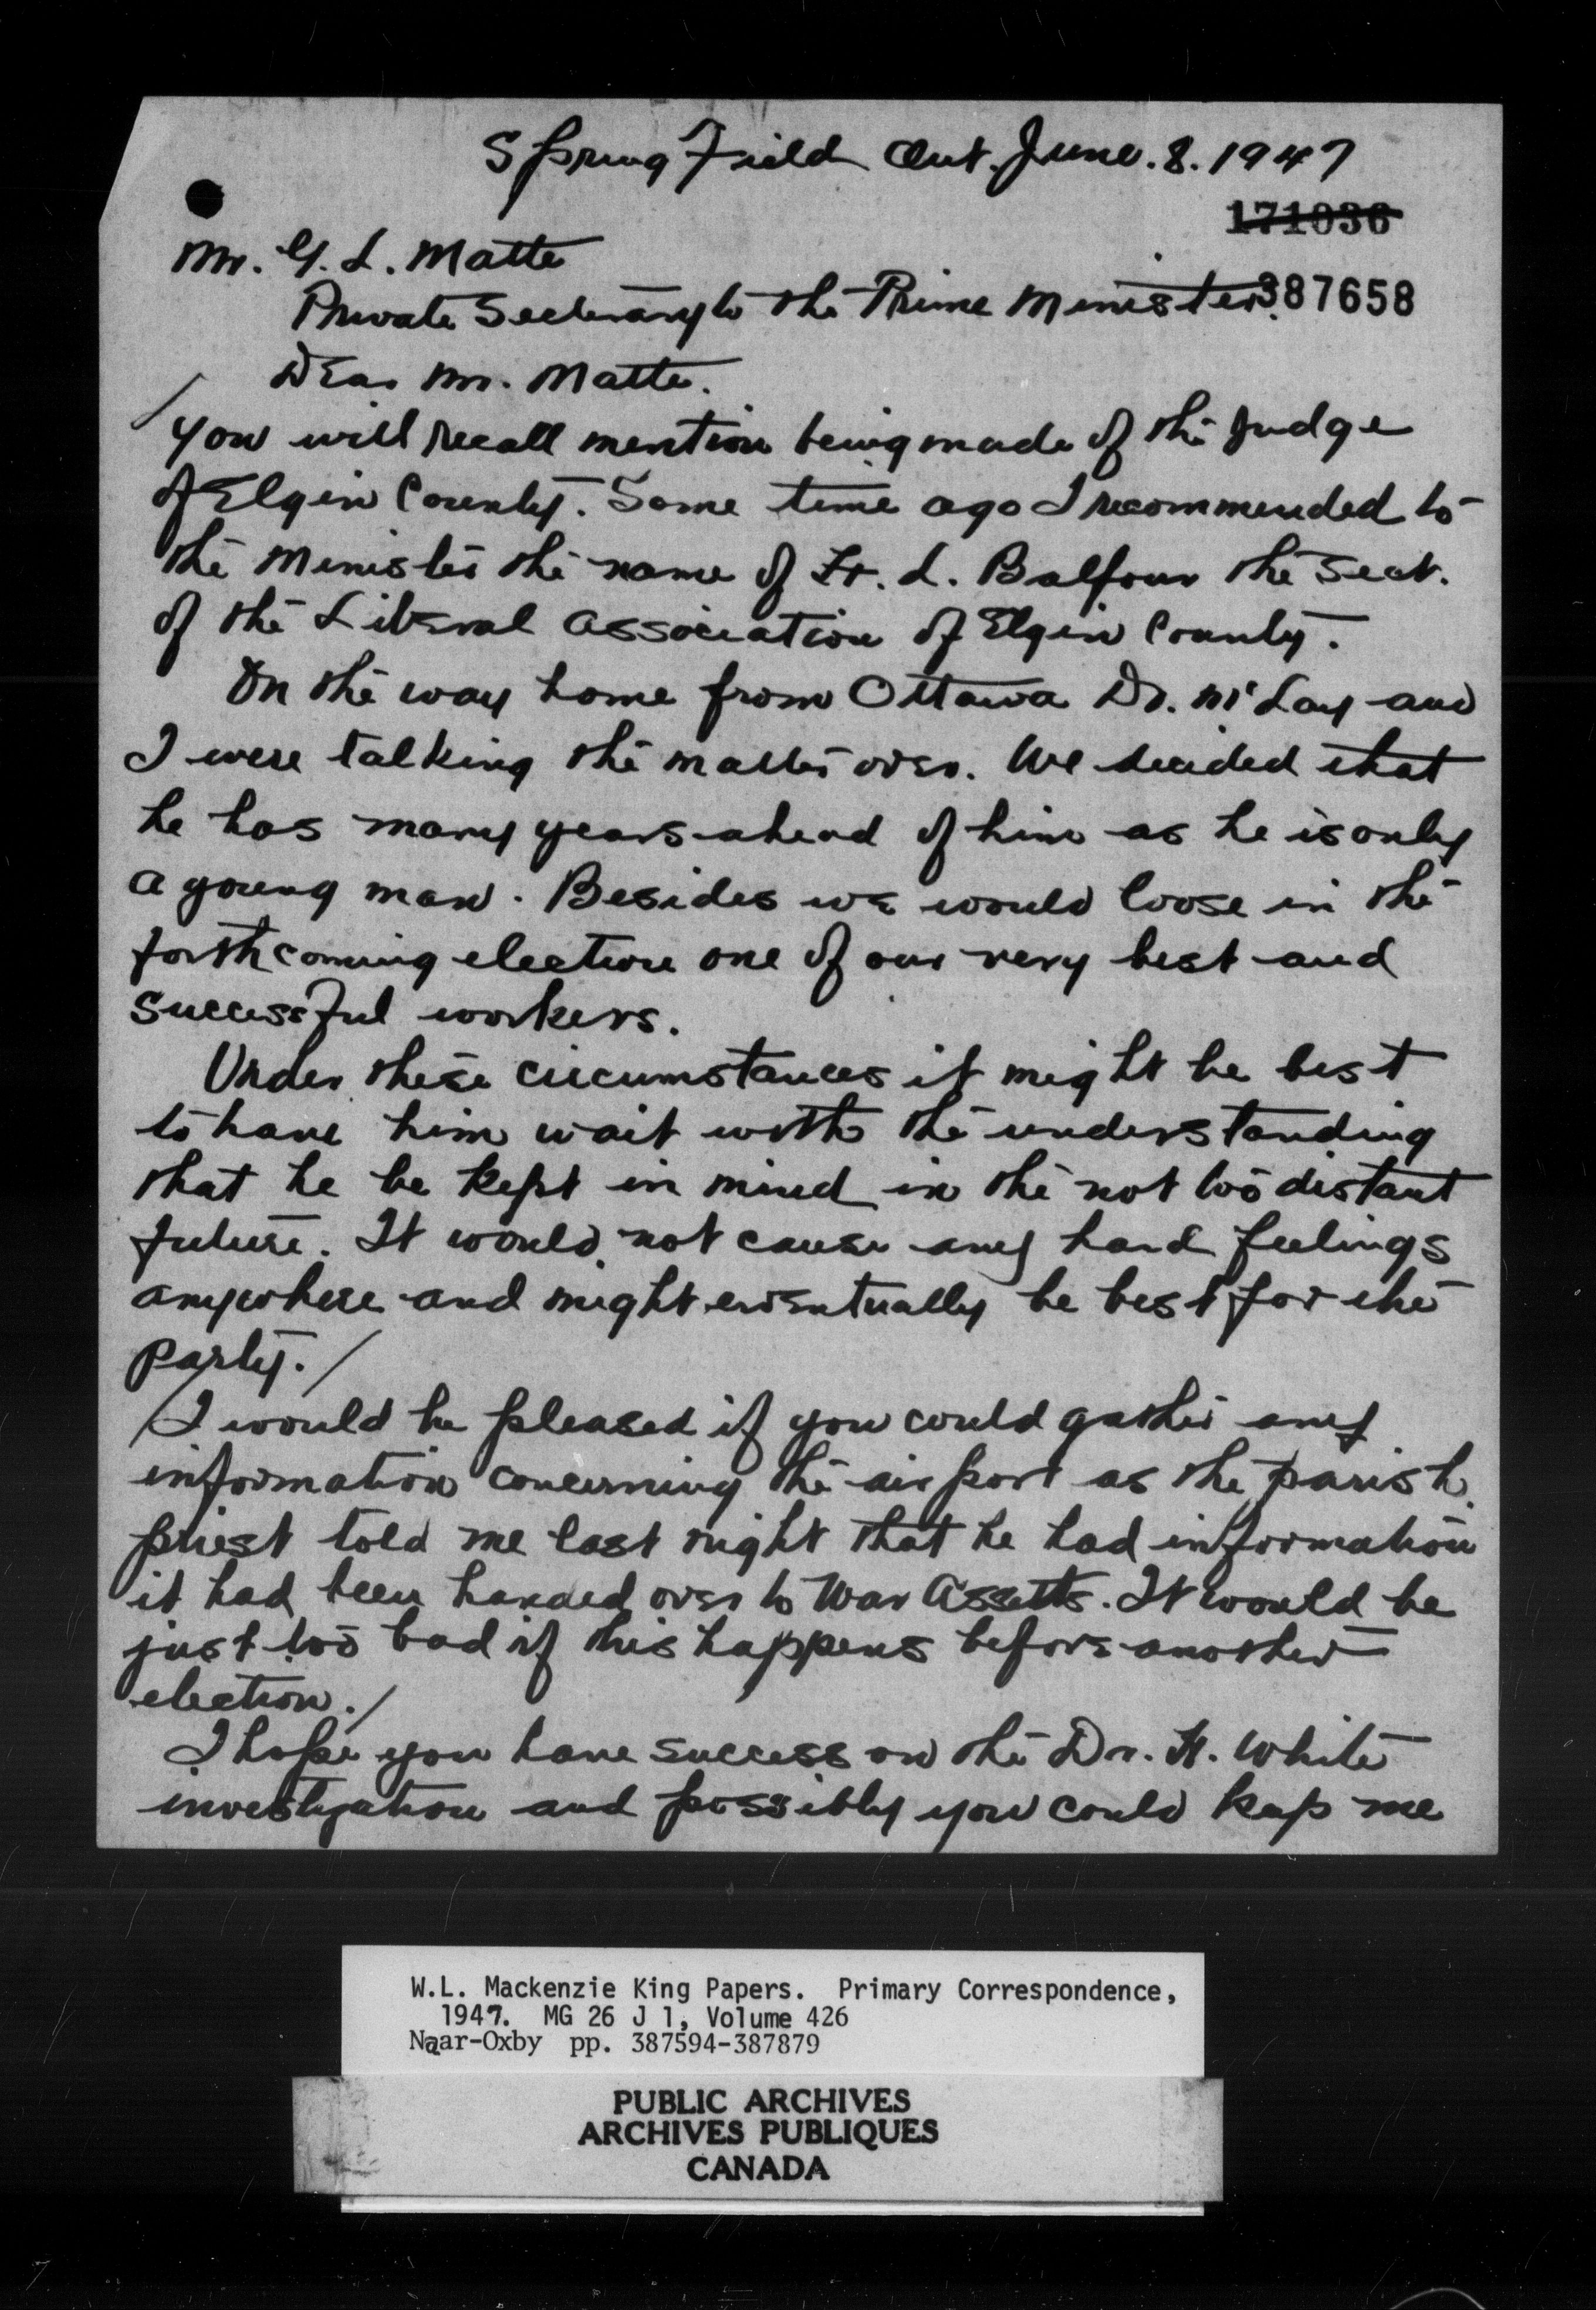 Springfield Ont. June. 8. 1947
171036
Mr. G. L. Matte
Private Secretary to the Prime Minister.
387658
Dear Mr. Matte.
You will recall mention being made of the Judge
of Elgin County. Some time ago I recommended to
the Minister the name of H. L. Balfour the Sect.
of the Liberal Association of Elgin County.
On the way home from Ottawa Dr. McLay and
I were talking the matter over. We decided that
he has many years ahead of him as he is only
a young man. Besides we would loose in the
forthcoming election one of our very best and
successful workers.
Under these circumstances it might be best
to have him wait with the understanding
that he be kept in mind in the not too distant
future. It would not cause any hard feelings
anywhere and might eventually be best for the
party. /
/ I would be pleased if you could gather any
information concerning the airport as the parish
priest told me last night that he had information
it had been handed over to War Assetts. It would be
just too bad if this happens before another
election. /
I hope you have success on the Dr. H. White
investigation and possibly you could keep me
W.L. Mackenzie King Papers. Primary Correspondence,
1947. MG 26 J 1, Volume 426
Naar-Oxby pp. 387594-387879
PUBLIC ARCHIVES
ARCHIVES PUBLIQUES
CANADA